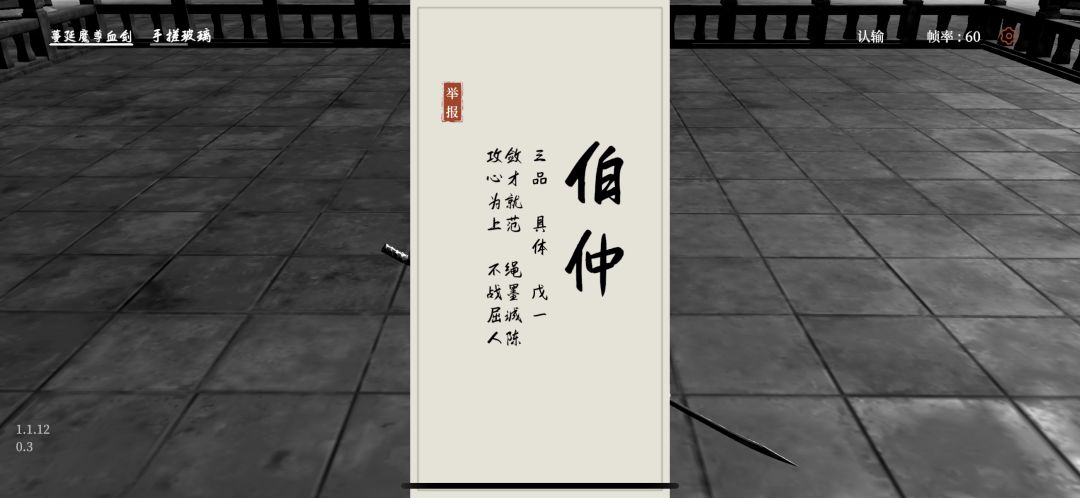 蔓延魔尊血剑 手搓玻璃
认输 帧率 : 60
举报
伯仲
三品 具体 戊一
敛才就范 绳墨诚陈
攻心为上 不战屈人
1.1.12
0.3